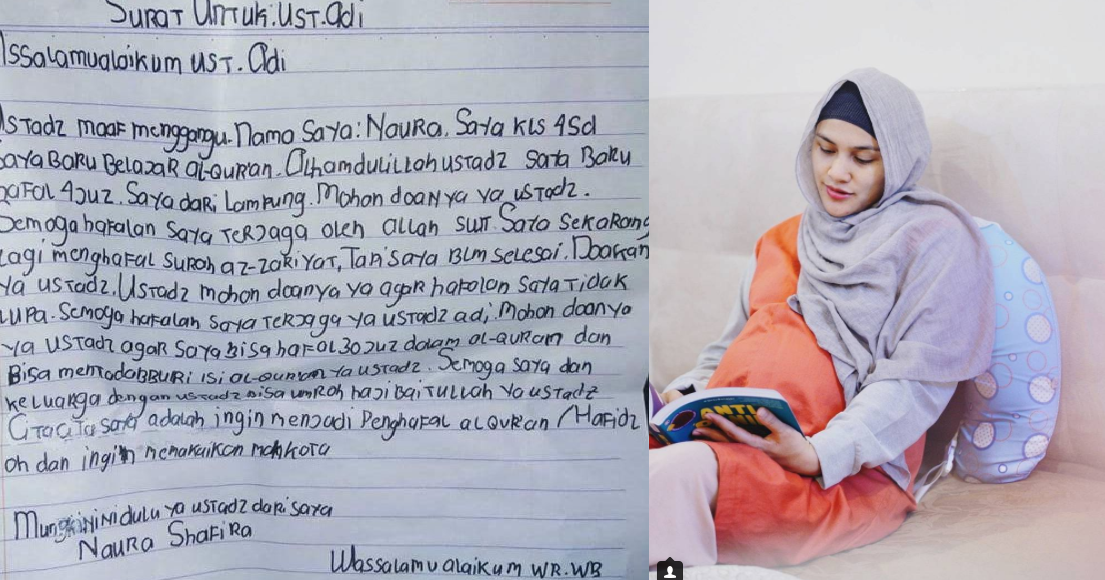 SURAT UNTUK. UST. adi
Assalamualaikum UST. adi
Ustadz maaf menggangu. Nama Saya: Naura. Saya KLS 4Sd
saya BaRu BeLajaR al-QuRan. Alhamdulillah ustadz saya Baru
hafal 4Juz. Saya dari Lampung. Mohon doanya ya ustadz.
Semoga hafalan saya terjaga oleh allah swt. Saya sekarang
Lagi menghafal surah az-zariyat, Tapi saya BLM selesai. Doakan
ya ustadz. Ustadz mohon doanya ya agar hafalan saya Tidak
Lupa. Semoga hafalan saya Terjaga ya ustadz adi. Mohon doanya
ya ustadz agar saya bisa hafal 30 Juz dalam al-quran dan
Bisa mentadabburi isi al-quran ya ustadz. Semoga saya dan
keluarga dengan ustadz bisa umroh haji Baitullah ya ustadz
Citacita saya adalah ingin menjadi Penghafal al QuRan / Hafidz
oh dan ingin memakaikan mahkota
Mungkin ini dulu ya ustadz dari saya
Naura Shafira
Wassalamualaikum WR. WB
ANTI